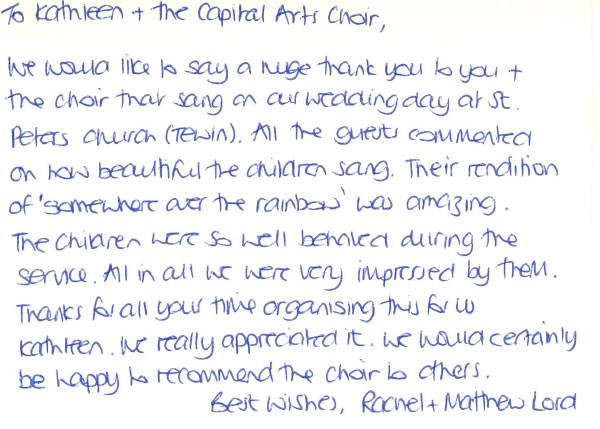 To Kathleen + the Capital Arts Choir,
We would like to say a huge thank you to you +
the choir that sang on our wedding day at St.
Peters Church (Tewin). All the guests commented
on how beautiful the children sang. Their rendition
of 'somewhere over the rainbow' was amazing.
The children were so well behaved during the
service. All in all we were very impressed by them.
Thanks for all your time organising this for us
Kathleen. We really appreciated it. We would certainly
be happy to recommend the choir to others.
Best Wishes, Rachel + Matthew Lord